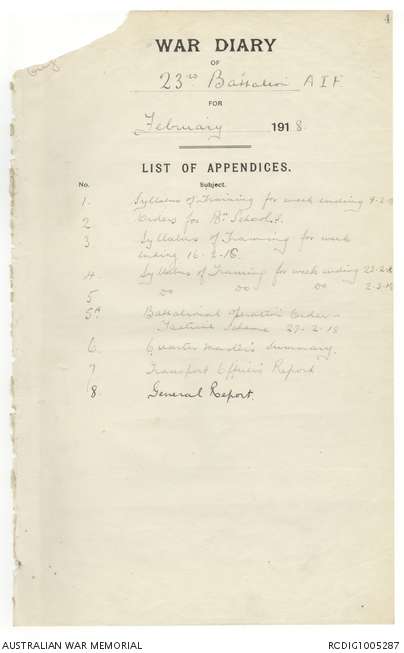 4
WAR DIARY
OF
23rd Battalion A I F
FOR
February 1918.
LIST OF APPENDICES.
No. Subject.
1. Syllabus of Training for week ending 9-2-
2 Orders for Bn Schools.
3 Syllabus of Training for week
ending 16-2-18.
4. Syllabus of Training for week ending 23-2-
5 do do do 2-3-18
5A Battalion Operation Order -
Tactical Scheme 27-2-18
6. Quarter Master's Summary.
7 Transport Officer's Report.
8. General Report.
AUSTRALIAN WAR MEMORIAL RCDIG1005287